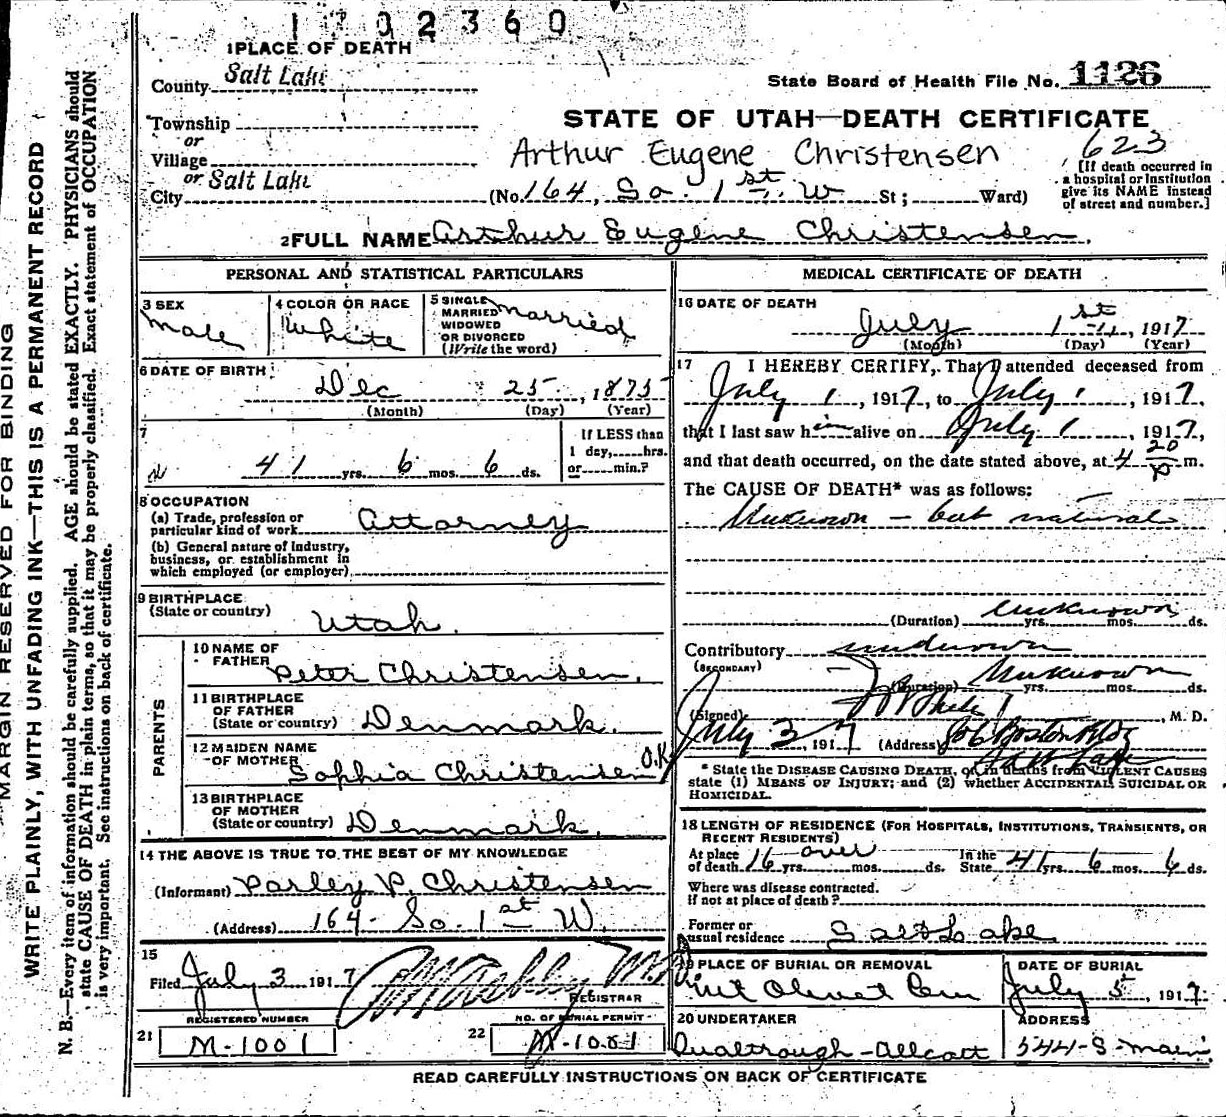 1702360
1 PLACE OF DEATH
County Salt Lake
State Board of Health File No. 1126
Township
or
Village
or
City Salt Lake
STATE OF UTAH—DEATH CERTIFICATE
Arthur Eugene Christensen 623
(No. 164, So. 1st W St; Ward)
[If death occurred in
a hospital or institution
give its NAME instead
of street and number.]
2 FULL NAME Arthur Eugene Christensen.
PERSONAL AND STATISTICAL PARTICULARS
3 SEX
Male
4 COLOR OR RACE
White
5 SINGLE
MARRIED
WIDOWED
OR DIVORCED
(Write the word)
Married
6 DATE OF BIRTH
Dec 25, 1875
(Month) (Day) (Year)
7
41 yrs. 6 mos. 6 ds.
If LESS than
1 day, hrs.
or min.?
8 OCCUPATION
(a) Trade, profession or
particular kind of work Attorney
(b) General nature of industry,
business, or establishment in
which employed (or employer)
9 BIRTHPLACE
(State or country)
Utah.
PARENTS
10 NAME OF
FATHER Peter Christensen.
11 BIRTHPLACE
OF FATHER
(State or country) Denmark.
12 MAIDEN NAME
OF MOTHER Sophia Christensen O.K.
13 BIRTHPLACE
OF MOTHER
(State or country) Denmark.
14 THE ABOVE IS TRUE TO THE BEST OF MY KNOWLEDGE
(Informant) Parley P. Christensen
(Address) 164- So. 1st W.
15
Filed July 3 1917
REGISTRAR
REGISTERED NUMBER
21 M-1001
NO. OF BURIAL PERMIT
22 M-1001
MEDICAL CERTIFICATE OF DEATH
16 DATE OF DEATH
July 1st, 1917
(Month) (Day) (Year)
17 I HEREBY CERTIFY, That I attended deceased from
July 1, 1917, to July 1, 1917,
that I last saw him alive on July 1, 1917,
and that death occurred, on the date stated above, at 4 20 P m.
The CAUSE OF DEATH* was as follows:
Unknown - but natural
(Duration) Unknown yrs. mos. ds.
Contributory unknown
(SECONDARY)
(Duration) Unknown yrs. mos. ds.
(Signed) M. D.
July 3, 1917 (Address) Boston Bldg
Salt Lake
* State the DISEASE CAUSING DEATH, or, in deaths from VIOLENT CAUSES
state (1) MEANS OF INJURY; and (2) whether ACCIDENTAL, SUICIDAL OR
HOMICIDAL.
18 LENGTH OF RESIDENCE (FOR HOSPITALS, INSTITUTIONS, TRANSIENTS, OR
RECENT RESIDENTS)
At place
of death 16 over yrs. mos. ds.
In the
State 41 yrs. 6 mos. 6 ds.
Where was disease contracted.
If not at place of death?
Former or
usual residence Salt Lake
19 PLACE OF BURIAL OR REMOVAL
Mt Olivet Cem
DATE OF BURIAL
July 5, 1917
20 UNDERTAKER
Qualtrough-Allcott
ADDRESS
544-S-Main
READ CAREFULLY INSTRUCTIONS ON BACK OF CERTIFICATE
MARGIN RESERVED FOR BINDING
WRITE PLAINLY, WITH UNFADING INK—THIS IS A PERMANENT RECORD
N. B.—Every item of information should be carefully supplied. AGE should be stated EXACTLY. PHYSICIANS should
state CAUSE OF DEATH in plain terms, so that it may be properly classified. Exact statement of OCCUPATION
is very important. See instructions on back of certificate.